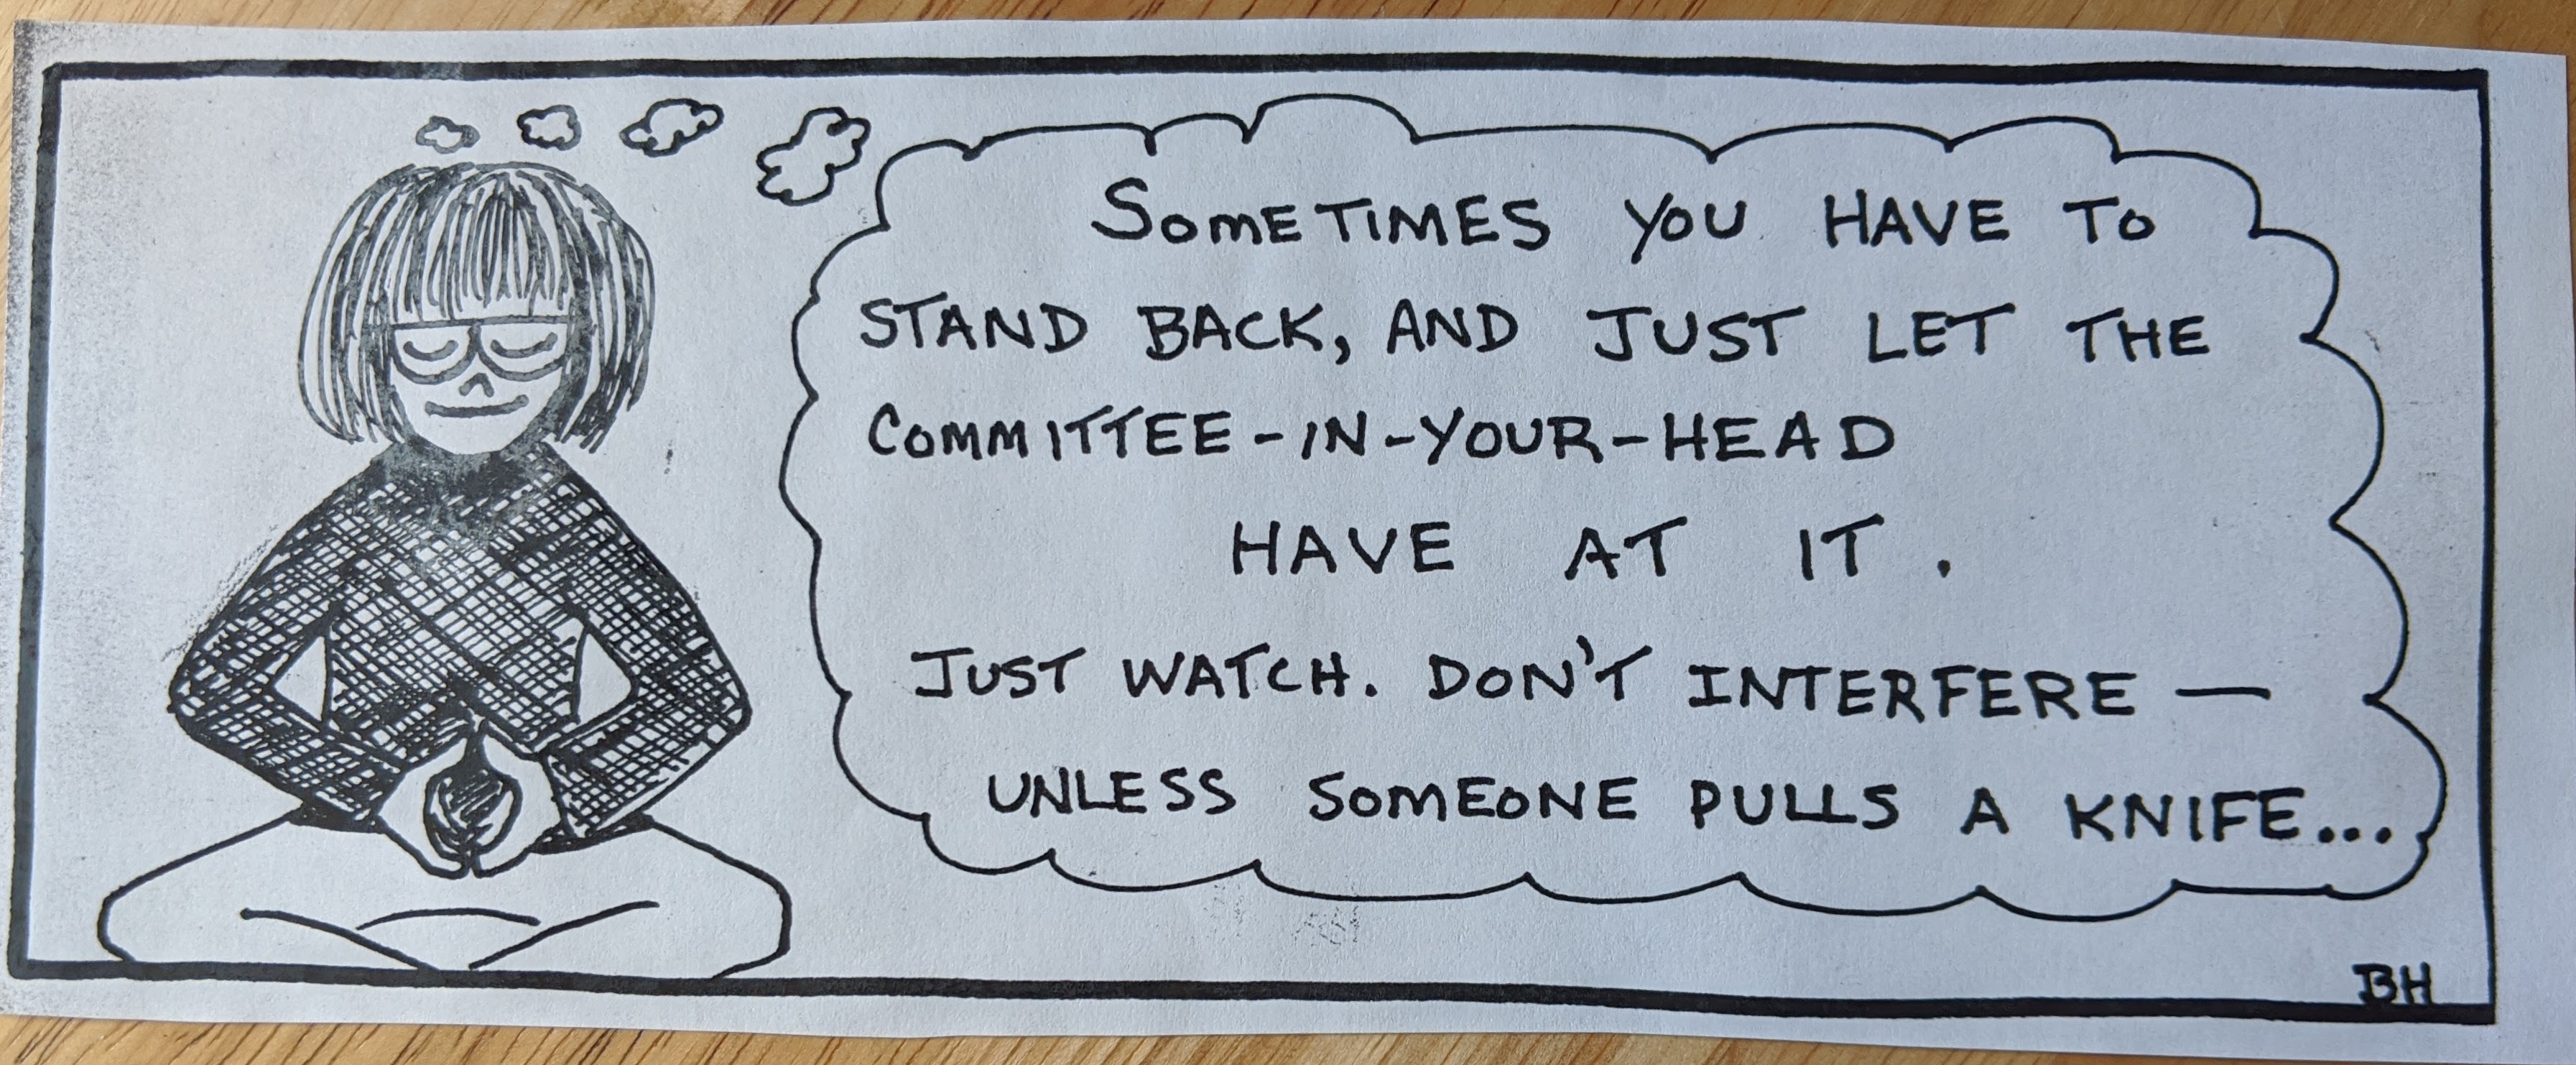 SOMETIMES YOU HAVE TO
STAND BACK, AND JUST LET THE
COMMITTEE-IN-YOUR-HEAD
HAVE AT IT.
JUST WATCH. DON'T INTERFERE —
UNLESS SOMEONE PULLS A KNIFE...
BH